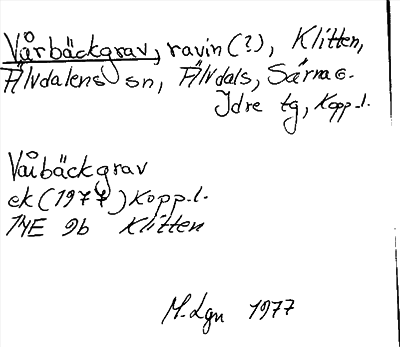 Vårbäckgrav, ravin (?), Klitten,
Älvdalens sn, Älvdals, Särna o.
Idre tg, Kopp.l.
Våibäckgrav
ek (1977) Kopp.l.
14E 9b Klitten
M. Lgn 1977